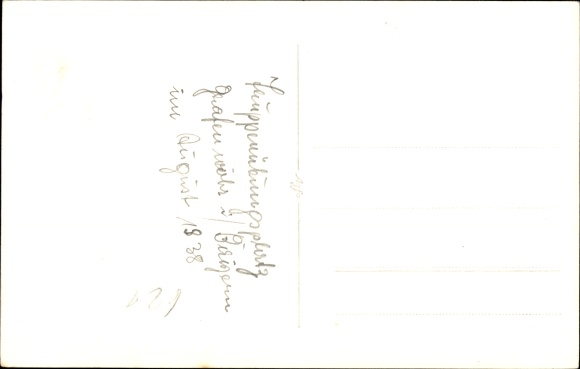 Truppenübungsplatz
Grafenwöhr i/Bayern
im August 1938